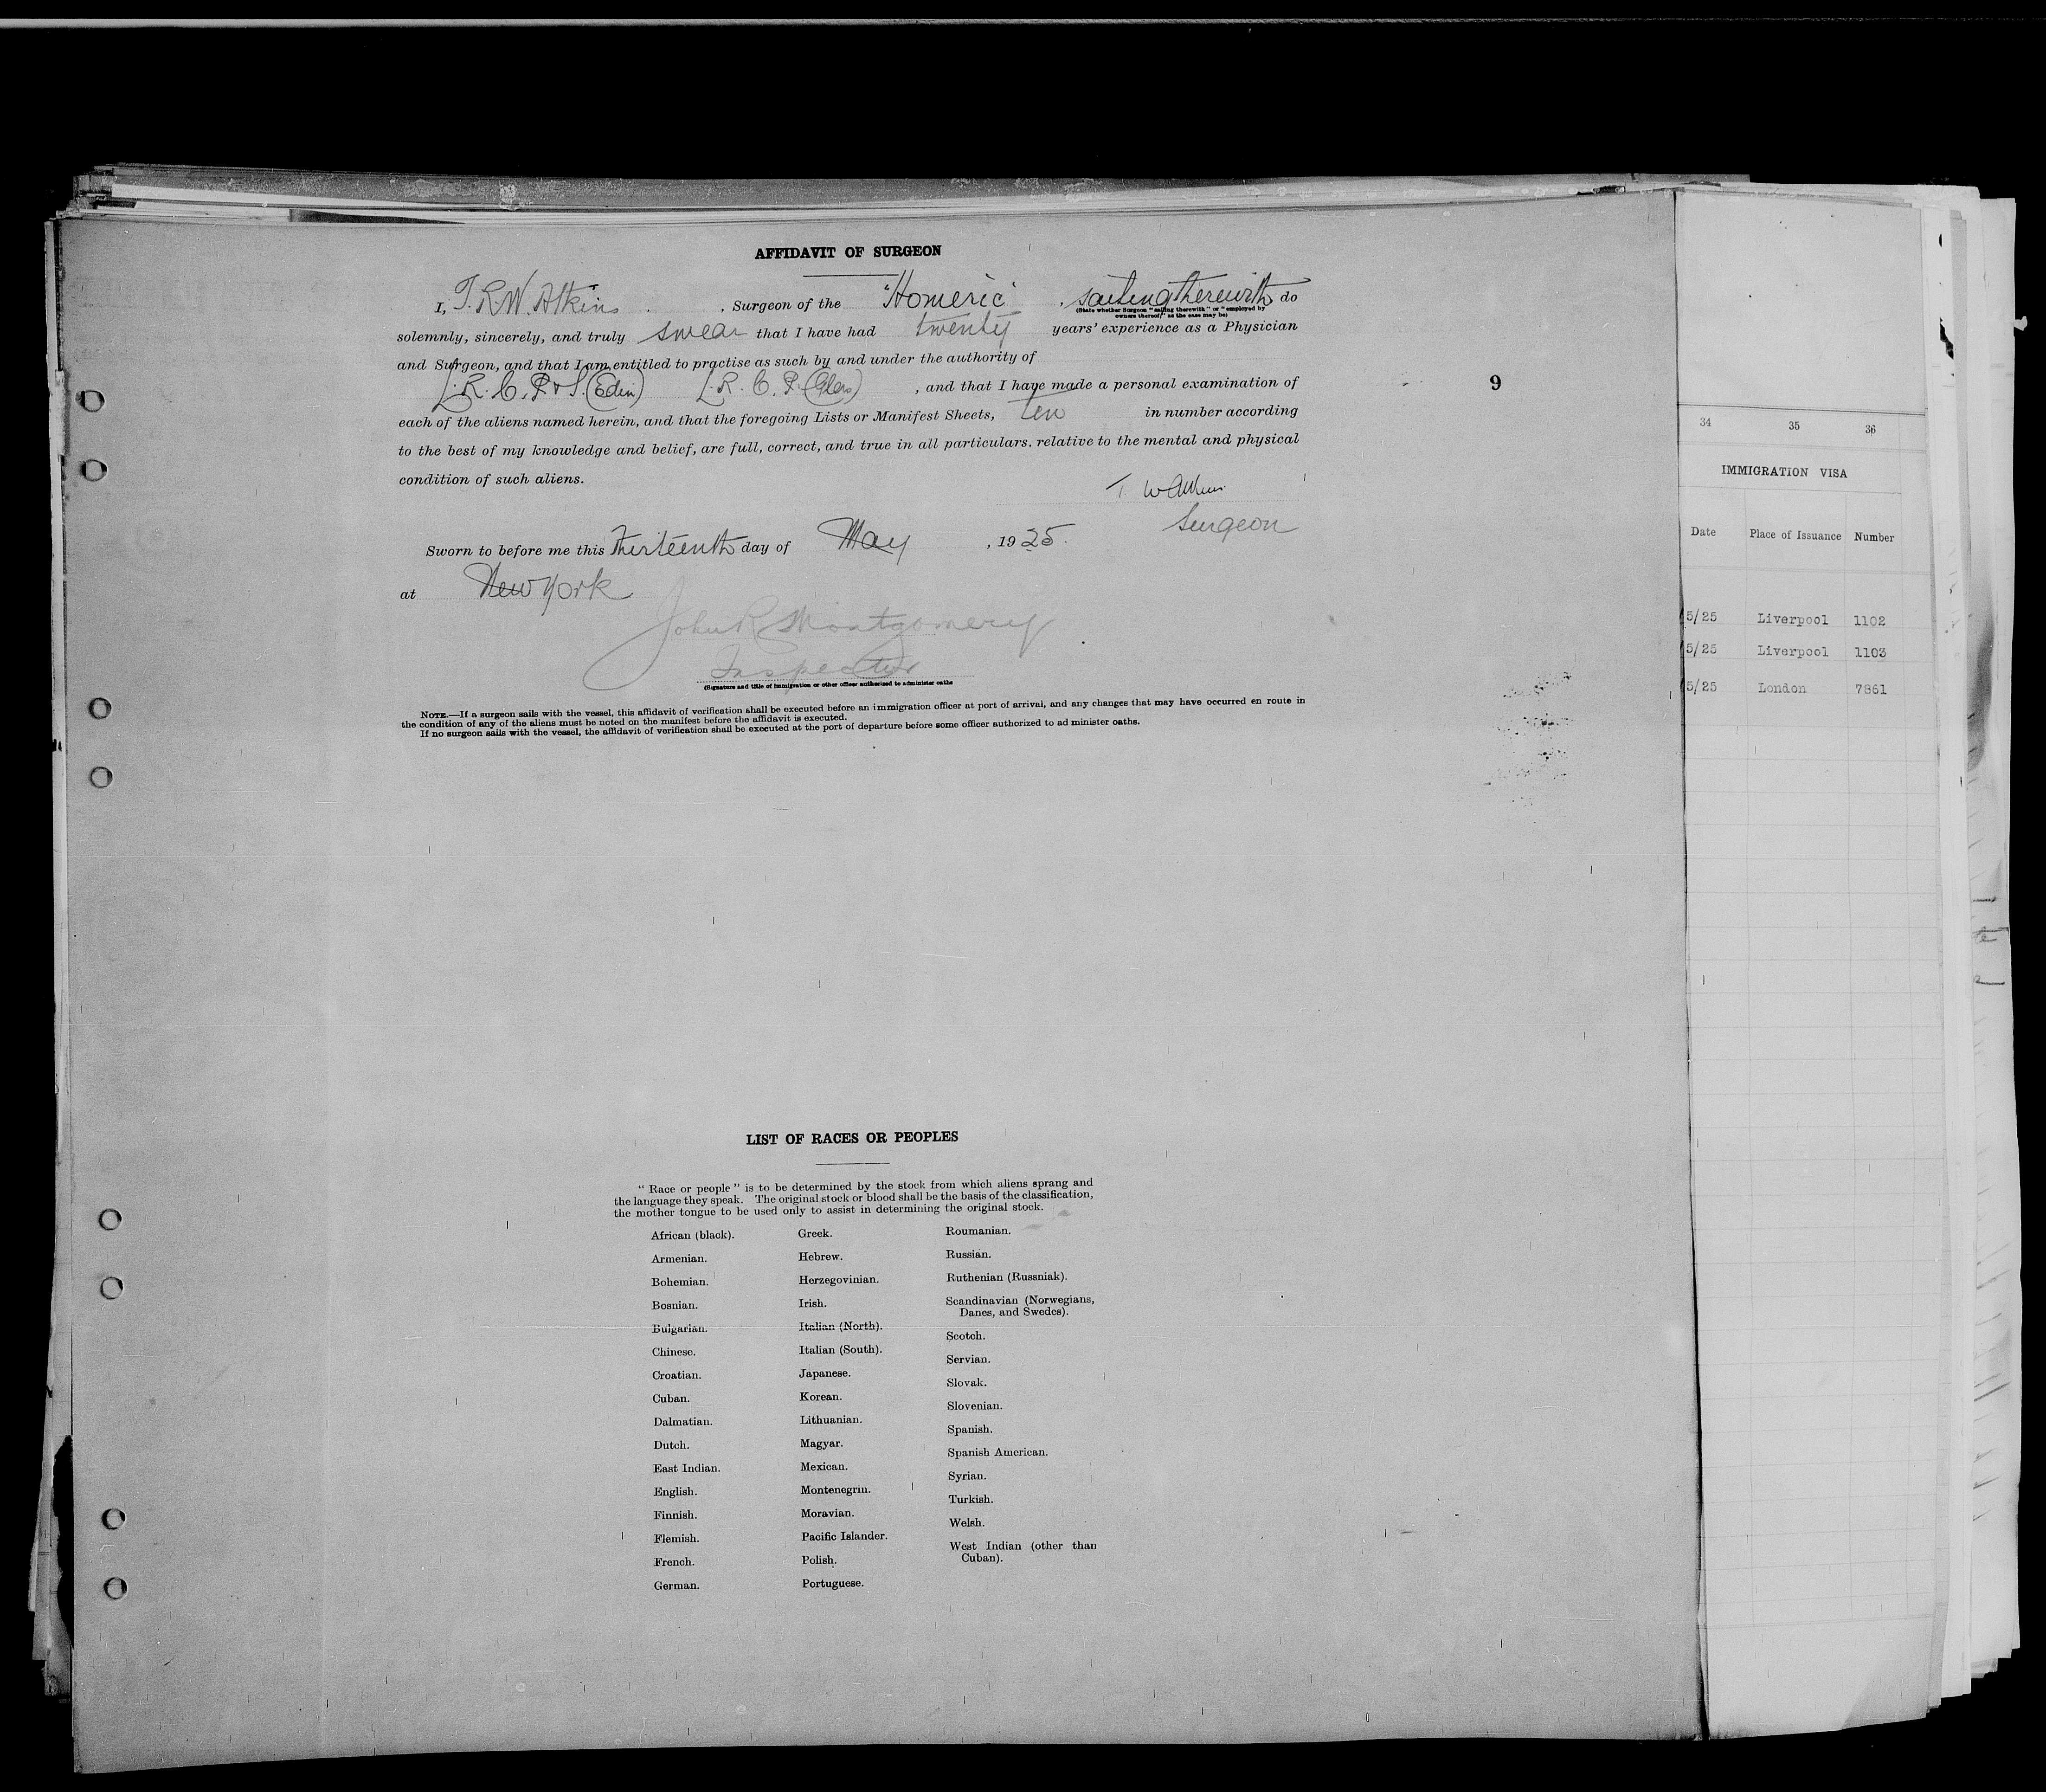 AFFIDAVIT OF SURGEON
I, T.R.W. Atkins , Surgeon of the "Homeric" , sailing therewith do
(State whether Surgeon "sailing therewith" or "employed by
owners thereof," as the case may be)
solemnly, sincerely, and truly swear that I have had twenty years' experience as a Physician
and Surgeon, and that I am entitled to practise as such by and under the authority of
L.R.C.P & S. (Edin) L.R.C.P. (Glas) , and that I have made a personal examination of
9
each of the aliens named herein, and that the foregoing Lists or Manifest Sheets, ten in number according
to the best of my knowledge and belief, are full, correct, and true in all particulars, relative to the mental and physical
condition of such aliens.
T. W Atkins
Surgeon
Sworn to before me this thirteenth day of May , 1925.
at New York
John R Montgomery
Inspector
(Signature and title of immigration or other officer authorized to administer oaths
NOTE.—If a surgeon sails with the vessel, this affidavit of verification shall be executed before an immigration officer at port of arrival, and any changes that may have occurred en route in
the condition of any of the aliens must be noted on the manifest before the affidavit is executed.
If no surgeon sails with the vessel, the affidavit of verification shall be executed at the port of departure before some officer authorized to ad minister oaths.
LIST OF RACES OR PEOPLES
" Race or people " is to be determined by the stock from which aliens sprang and
the language they speak. The original stock or blood shall be the basis of the classification,
the mother tongue to be used only to assist in determining the original stock.
African (black).
Armenian.
Bohemian.
Bosnian.
Bulgarian.
Chinese.
Croatian.
Cuban.
Dalmatian.
Dutch.
East Indian.
English.
Finnish.
Flemish.
French.
German.
Greek.
Hebrew.
Herzegovinian.
Irish.
Italian (North).
Italian (South).
Japanese.
Korean.
Lithuanian.
Magyar.
Mexican.
Montenegrin.
Moravian.
Pacific Islander.
Polish.
Portuguese.
Roumanian.
Russian.
Ruthenian (Russniak).
Scandinavian (Norwegians,
Danes, and Swedes).
Scotch.
Servian.
Slovak.
Slovenian.
Spanish.
Spanish American.
Syrian.
Turkish.
Welsh.
West Indian (other than
Cuban).
34 35 36
IMMIGRATION VISA
Date Place of Issuance Number
5/25 Liverpool 1102
5/25 Liverpool 1103
5/25 London 7861